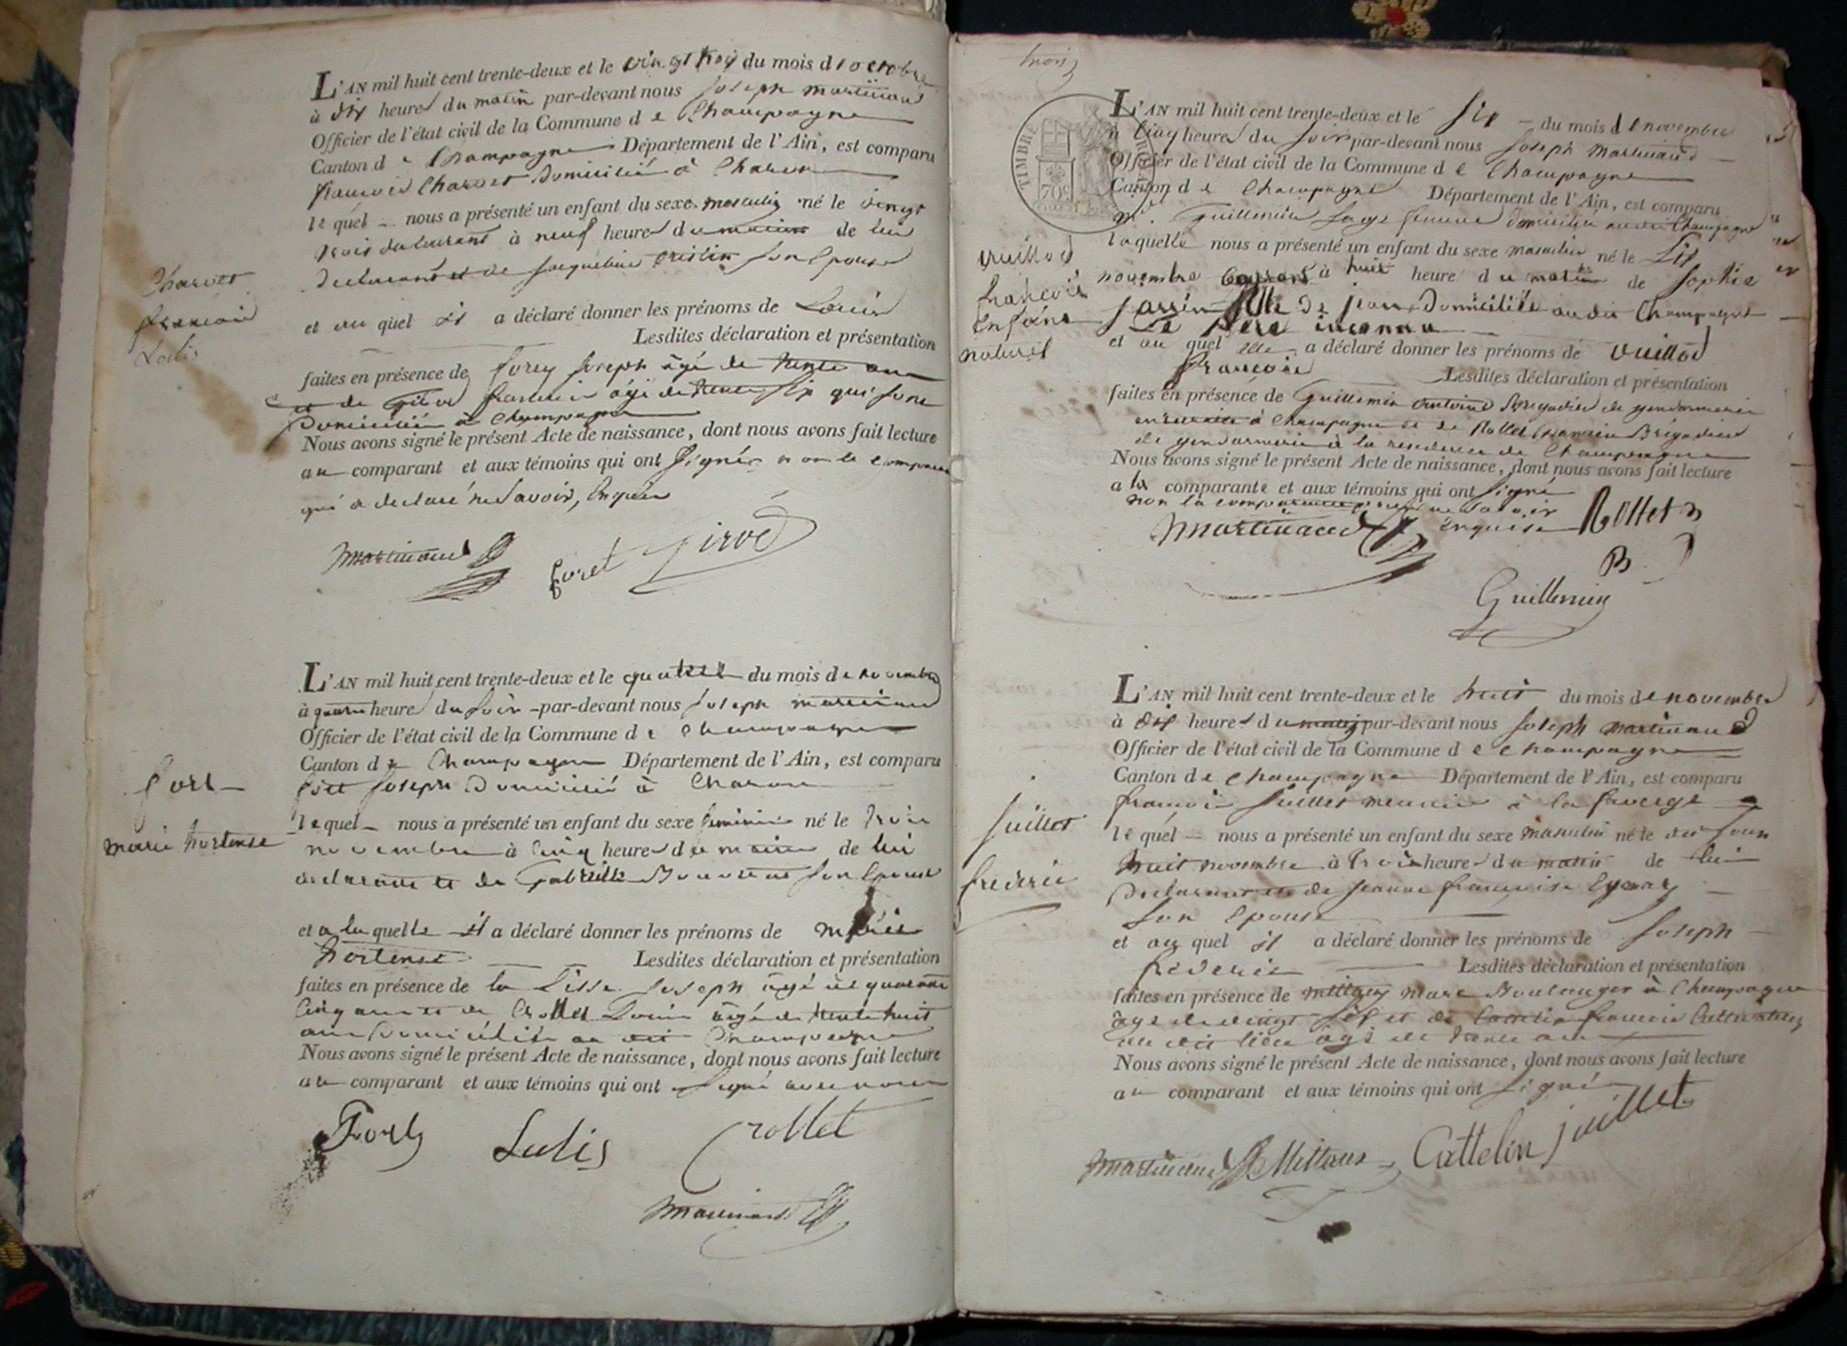 L'AN mil huit cent trente-deux et le vingt trois du mois d'octobre
à dix heures du matin par-devant nous joseph martinaud
Officier de l'état civil de la Commune de Champagne
Canton de Champagne Département de l'Ain, est comparu
françois Charvet Domicilié à Charon
lequel nous a présenté un enfant du sexe masculin né le vingt
trois du courant à neuf heures du matin de lui
déclarant et de jacqueline son épouse
Charvet
françois
Louis
et au quel il a déclaré donner les prénoms de Louis
Lesdites déclaration et présentation
faites en présence de forey joseph âgé de trente ans
et de françois âgé de trente six qui sont
Domiciliés à Champagne
Nous avons signé le présent Acte de naissance, dont nous avons fait lecture
au comparant et aux témoins qui ont signé non le comparant
qui a déclaré ne savoir, Enquis
martinaud
foret
L'AN mil huit cent trente-deux et le quatre du mois de novembre
à quatre heures du soir par-devant nous joseph martinaud
Officier de l'état civil de la Commune de Champagne
Canton de Champagne Département de l'Ain, est comparu
joseph Domicilié à Charon
lequel nous a présenté un enfant du sexe féminin né le trois
novembre à cinq heures du matin de lui
déclarant et de Gabrielle son épouse
marie hortense
et a la quelle il a déclaré donner les prénoms de marie
hortense Lesdites déclaration et présentation
faites en présence de la joseph âgé de quarante
cinq ans et de Crollet Louis âgé de trente huit
ans Domiciliés au dit Champagne
Nous avons signé le présent Acte de naissance, dont nous avons fait lecture
au comparant et aux témoins qui ont signé avec nous
Crollet
martinaud
trois
TIMBRE ROYAL
70c
L'AN mil huit cent trente-deux et le six du mois de novembre
à cinq heures du soir par-devant nous joseph martinaud
Officier de l'état civil de la Commune de Champagne
Canton de Champagne Département de l'Ain, est comparu
Guillemin sage femme domiciliée au dit Champagne
laquelle nous a présenté un enfant du sexe masculin né le six
novembre courant à huit heures du matin de Sophie
fille de jean Domiciliée au dit Champagne
Le père inconnu
Vuillod
françois
Enfant
naturel
et au quel elle a déclaré donner les prénoms de vuillod
françois Lesdites déclaration et présentation
faites en présence de Guillemin antoine Brigadier de gendarmerie
à Champagne et de Rollet Brigadier
de gendarmerie à la résidence de Champagne
Nous avons signé le présent Acte de naissance, dont nous avons fait lecture
a la comparante et aux témoins qui ont signé
non la comparante pour ne savoir
enquise
martinaud
Rollet
B
Guillemin
L'AN mil huit cent trente-deux et le huit du mois de novembre
à dix heures du matin par-devant nous joseph martinaud
Officier de l'état civil de la Commune de Champagne
Canton de Champagne Département de l'Ain, est comparu
françois juillet meunier à la
lequel nous a présenté un enfant du sexe masculin né le dit jour
huit novembre à trois heures du matin de lui
Déclarant et de jeanne françoise
son épouse
juillet
frédéric
et au quel il a déclaré donner les prénoms de joseph
frédéric Lesdites déclaration et présentation
faites en présence de marc Boulanger à Champagne
âgé de vingt sept et de Cattelin françois
au dit lieu âgé de trente ans
Nous avons signé le présent Acte de naissance, dont nous avons fait lecture
au comparant et aux témoins qui ont signé
martinaud
Cattelin
juillet